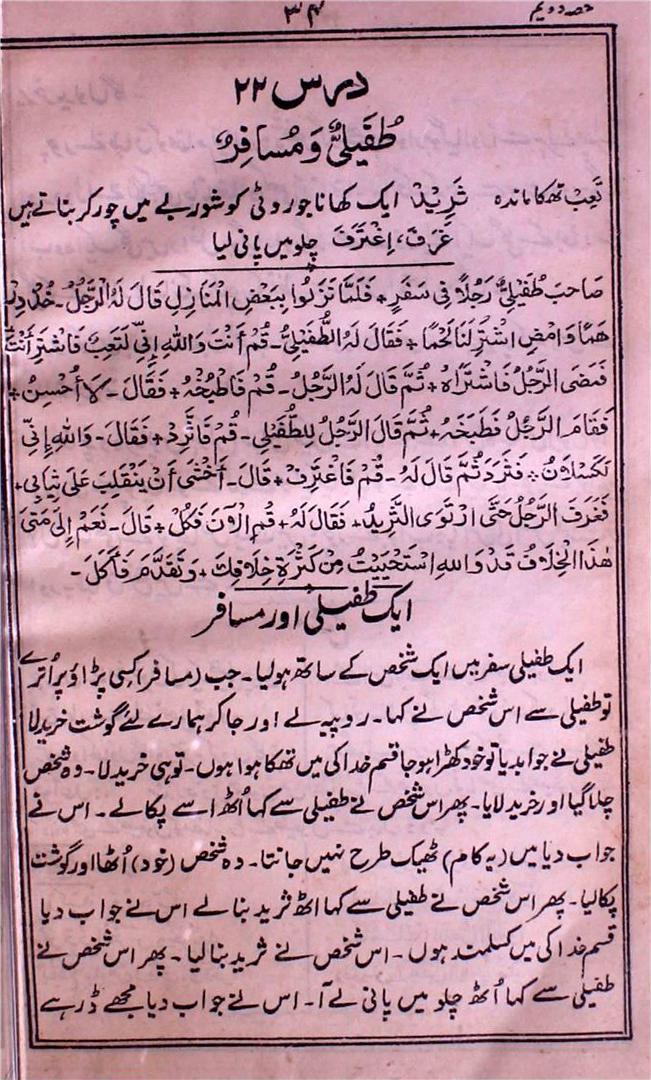 حصہ دویم
۳۴
درس ۲۲
طُفَیلِیٌّ وَ مُسَافِرٌ
تَعِبْ تھکا ماندہ ثَرِیْدْ ایک کھانا جو روٹی کو شوربے میں چور کر بناتے ہیں
غَرَفَ، اِغْتَرَفَ چلو میں پانی لیا
صَاحَبَ طُفَیْلِیٌّ رَجُلًا فِی سَفَرٍ + فَلَمَّا نَزَلُوا بِبَعْضِ الْمَنَازِلِ قَالَ لَهُ الرَّجُلُ۔ خُذْ دِرْ
هَمًا وَامْضِ اشْتَرِ لَنَا لَحْمًا + فَقَالَ لَهُ الطُّفَیْلِیُّ۔ قُمْ أَنْتَ وَاللهِ إِنِّی لَتَعِبٌ فَاشْتَرِ أَنْتَ
فَمَضَی الرَّجُلُ فَاشْتَرَاهُ + ثُمَّ قَالَ لَهُ الرَّجُلُ۔ قُمْ فَاطْبُخْهُ + فَقَالَ۔ لَا أُحْسِنُ +
فَقَامَ الرَّجُلُ فَطَبَخَهُ + ثُمَّ قَالَ الرَّجُلُ لِلطُّفَیْلِی۔ قُمْ فَاثْرِدْ + فَقَالَ۔ وَاللهِ إِنِّی
لَکَسْلَانُ + فَثَرَدَ ثُمَّ قَالَ لَهُ۔ قُمْ فَاغْتَرِفْ + قَالَ۔ أَخْشٰی أَنْ یَنْقَلِبَ عَلٰی ثِیَابِی +
فَغَرَفَ الرَّجُلُ حَتَّی ارْتَوَی الثَّرِیْدُ + فَقَالَ لَهُ + قُمِ الْآنَ فَکُلْ + قَالَ۔ نَعَمْ إِلٰی مَتٰی
هٰذَا الْخِلَافُ قَدْ وَاللهِ اسْتَحْیَیْتُ مِنْ کَثْرَةِ خِلَافِكَ + وَتَقَدَّمَ فَأَکَلَ۔
ایک طفیلی اور مسافر
ایک طفیلی سفر میں ایک شخص کے ساتھ ہو لیا۔ جب (مسافر) کسی پڑاؤ پر اُترے
تو طفیلی سے اس شخص نے کہا۔ روپیہ لے اور جا کر ہمارے لئے گوشت خرید لا
طفیلی نے جواب دیا تو خود کھڑا ہو جا قسم خدا کی میں تھکا ہوا ہوں۔ تو ہی خرید لا۔ وہ شخص
چلا گیا اور خرید لایا۔ پھر اس شخص نے طفیلی سے کہا اُٹھ اسے پکا لے۔ اس نے
جواب دیا میں (یہ کام) ٹھیک طرح نہیں جانتا۔ وہ شخص (خود) اُٹھا اور گوشت
پکا لیا۔ پھر اس شخص نے طفیلی سے کہا اٹھ ثرید بنا لے اس نے جواب دیا
قسم خدا کی میں کسلمند ہوں۔ اس شخص نے ثرید بنا لیا۔ پھر اس شخص نے
طفیلی سے کہا اُٹھ چلو میں پانی لے آ۔ اس نے جواب دیا مجھے ڈر ہے